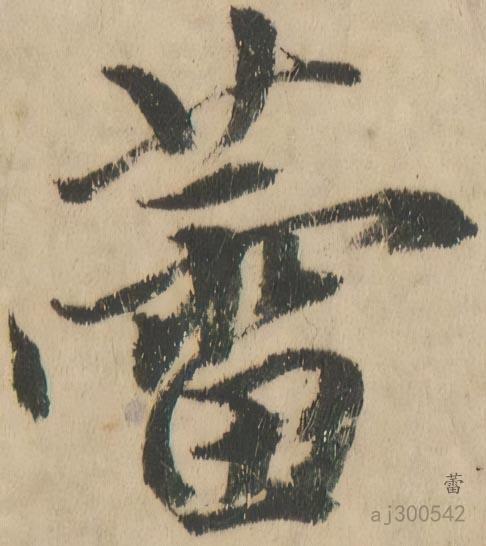 蕾
蕾
aj300542